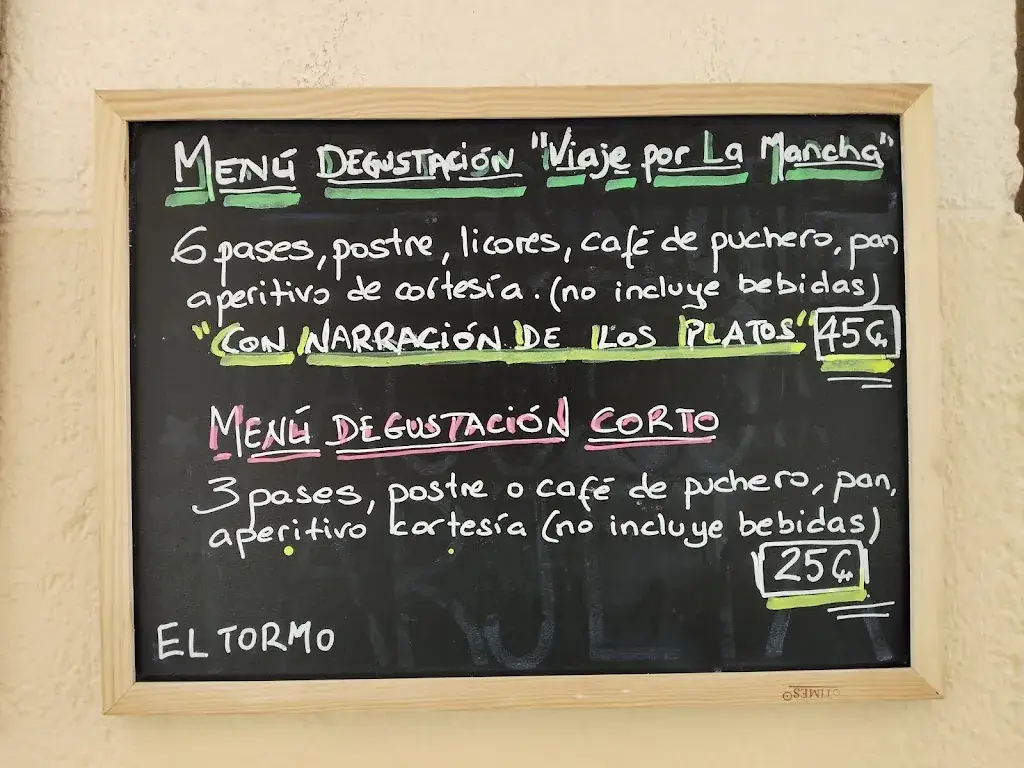 MENÚ DEGUSTACIÓN "Viaje por La Mancha"
6 pases, postre, licores, café de puchero, pan
aperitivo de cortesía. (no incluye bebidas)
"CON NARRACIÓN DE LOS PLATOS" 45€
MENÚ DEGUSTACIÓN CORTO
3 pases, postre o café de puchero, pan,
aperitivo cortesía (no incluye bebidas)
25€
EL TORMO